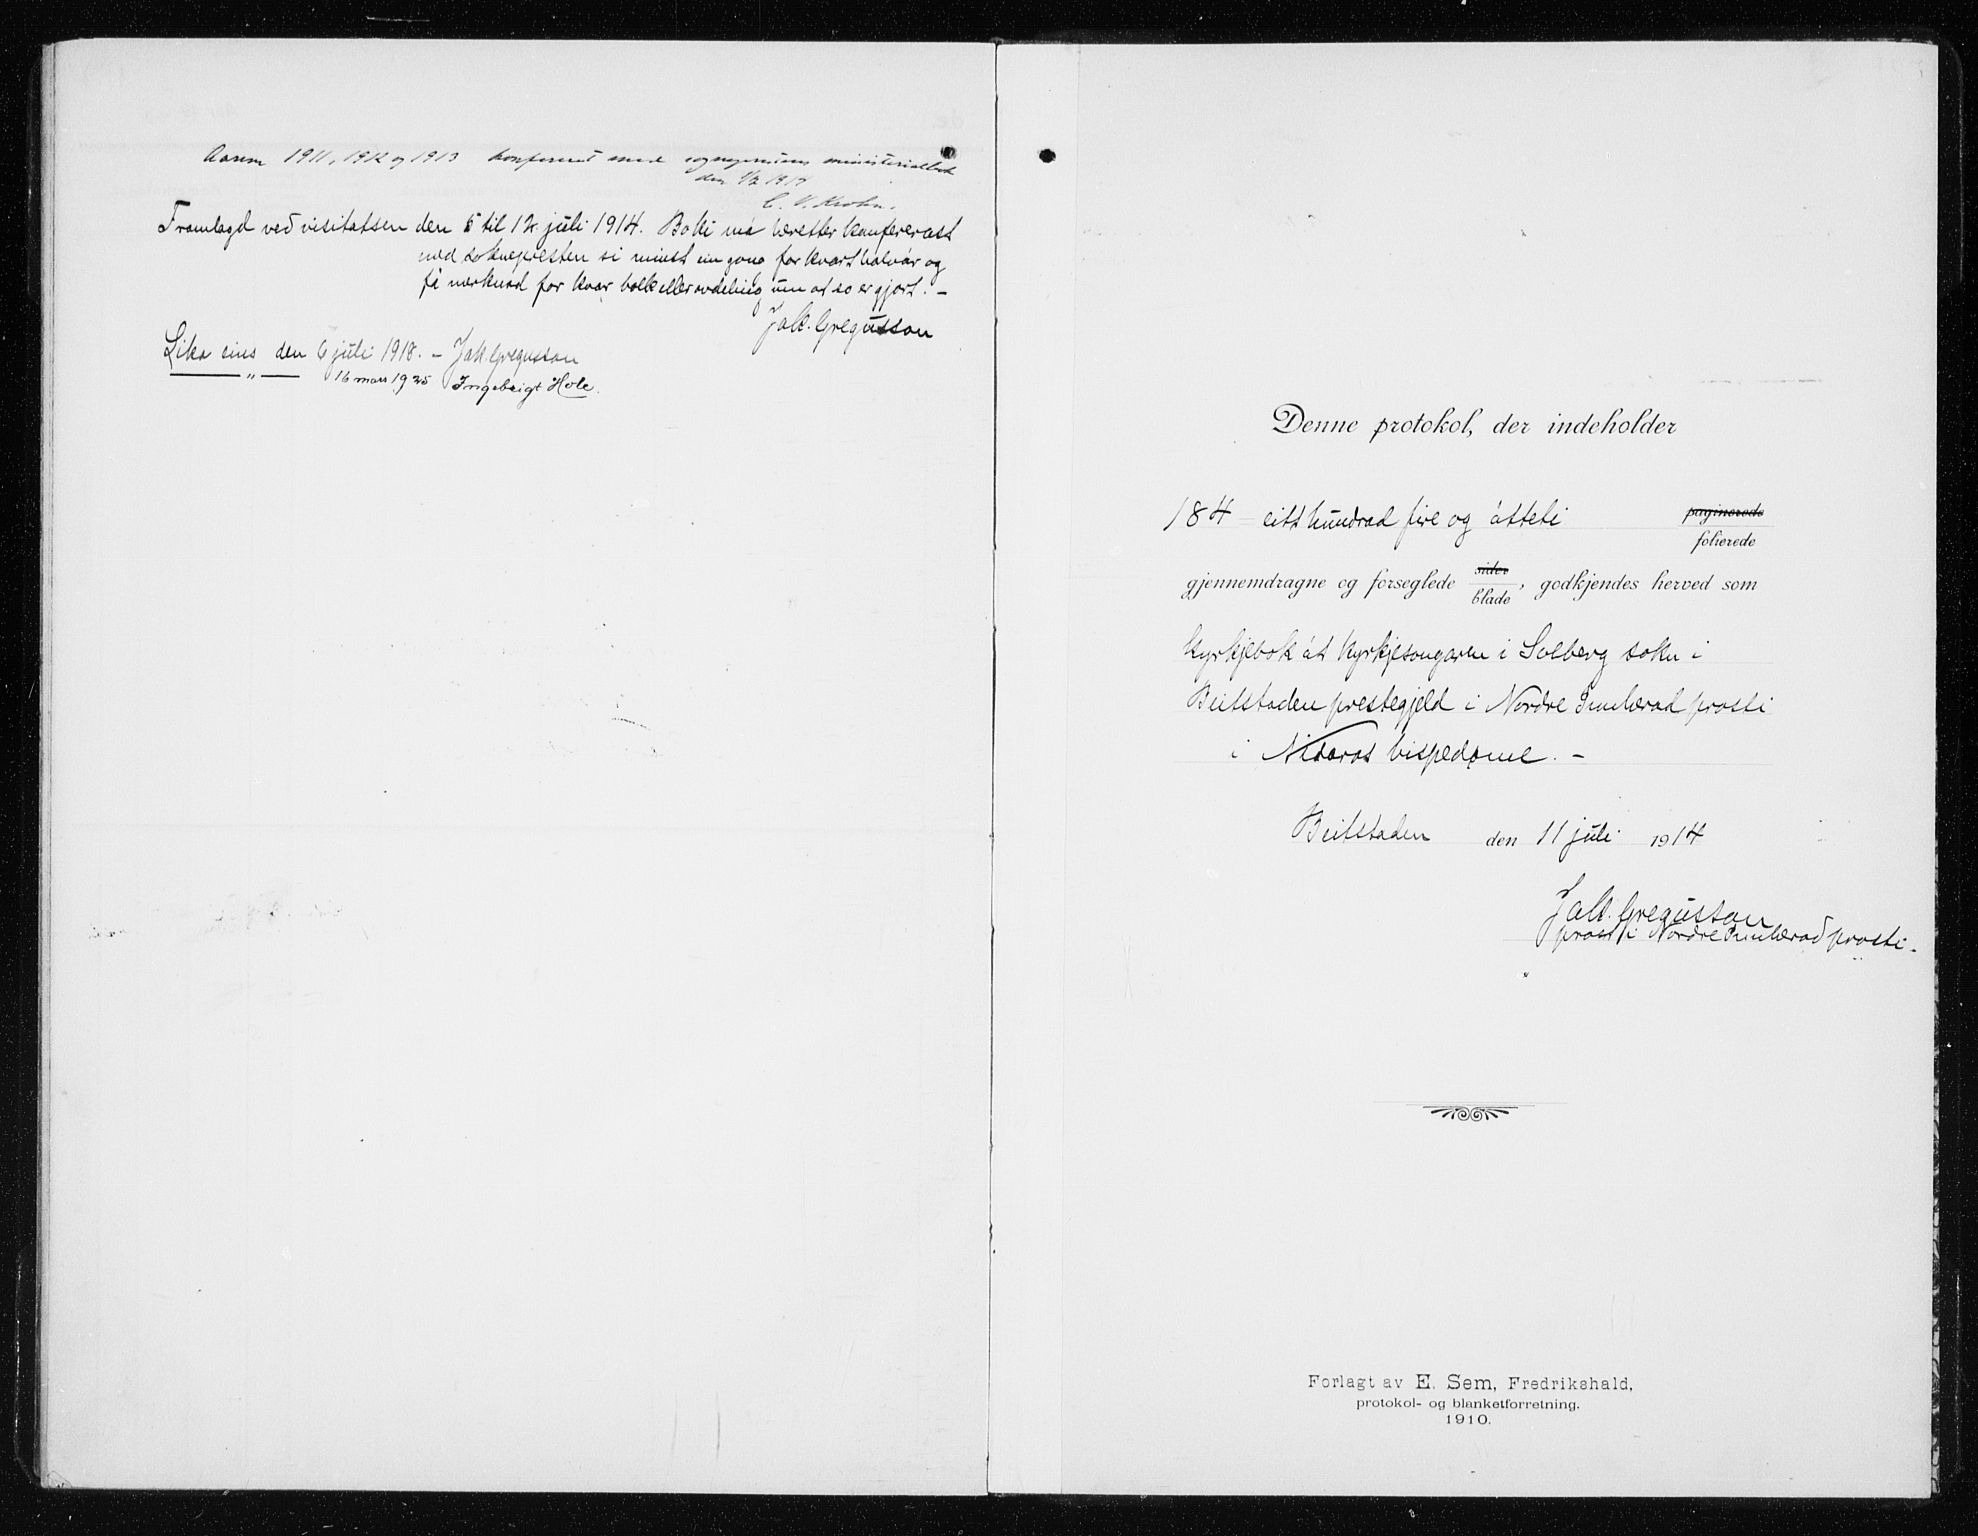 Aarene 1911, 1912 og 1913 konfereret med sogneprestens ministerialbok
den 1/2 1914
C. V. Krohn.
Framlagd ved visitatsen den 5 til 12 juli 1914. Boki må heretter konfererast
med soknepresten si minst ein gong for kvart halvår og
få merknad for kvar bolk eller avdeling um at so er gjort. –
Jak. Gregusson
Lika eins den 6 juli 1918. – Jak. Gregusson
— " — 16 mars 1925 Ingebrigt Hole.
Denne protokol, der indeholder
184 – eitt hundrad fire og åtteti paginerede
folierede
gjennemdragne og forseglede sider
blade, godkjendes herved som
kyrkjebok åt kyrkjesongaren i Solberg sokn i
Beitstaden prestegjeld i Nordre Innherad prosti
i Nidaros bispedøme. –
Beitstaden den 11 juli 1914
Jak. Gregusson
prost i Nordre Innherad prosti.
Forlagt av E. Sem, Fredrikshald,
protokol- og blanketforretning.
1910.